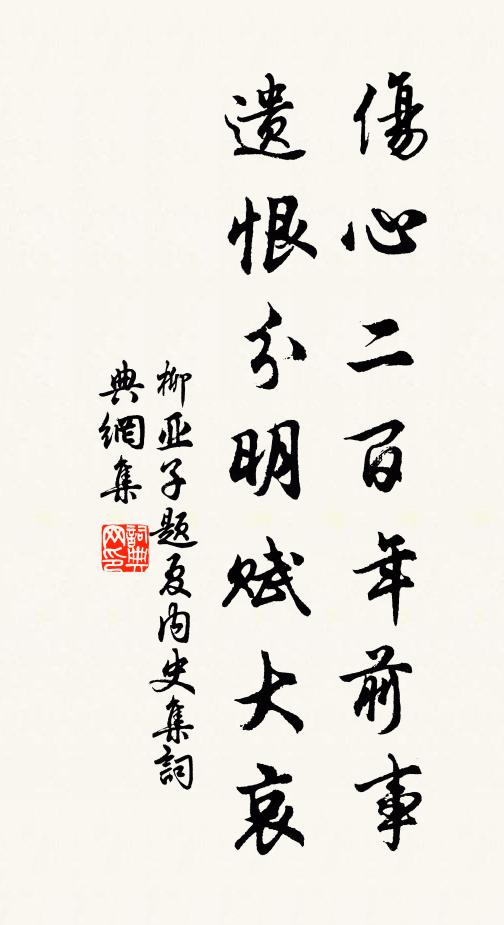 傷心二百年前事
遺恨分明賦大哀
柳亚子題夏内史集詞
典網集
詞典
网印